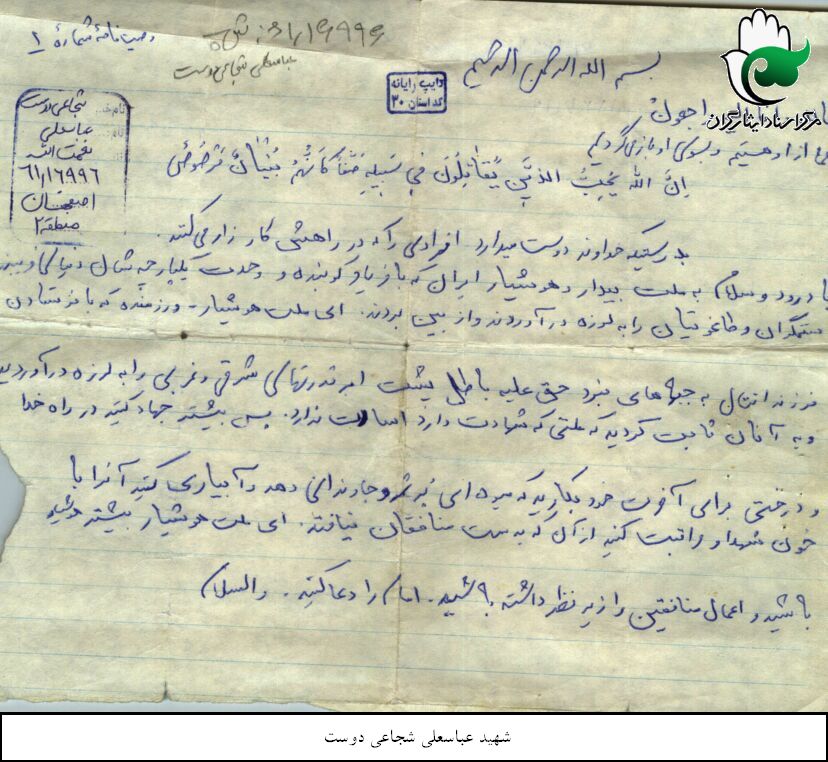 وصیت نامهٔ شمارهٔ ۱
۶۱/۱۶۹۹۶
عباسعلی شجاعی دوست
بسم الله الرحمن الرحیم
تایپ رایانه
کد استان ۳۰
مرکز اسناد ایثارگران
شجاعی دوست
عباسعلی
نعمت الله
۶۱/۱۶۹۹۶
اصفهان
منطقه ۲
راجعون
ما از او هستیم و بسوی او باز می گردیم
ان الله یحب الذین یقاتلون فی سبیله صفا کانهم بنیان مرصوص
بدرستیکه خداوند دوست میدارد افرادی را که در راهش کارزار می کنند.
با درود و سلام به ملت بیدار و هوشیار ایران که با فریاد کوبنده و وحدت یکپارچه شان دنیای
ستمگران و طاغوتیان را به لرزه در آوردند و از بین بردند. ای ملت هوشیار و رزمنده که با فرستادن
فرزندانتان به جبهه های نبرد حق علیه باطل پشت ابرقدرتهای شرقی و غربی را به لرزه درآوردید
و به آنان ثابت کردید که ملتی که شهادت دارد اسارت ندارد. پس بیشتر جهاد کنید در راه خدا
و درختی برای آخرت خود بکارید که میوه ای پر ثمر و جاودانی دهد و آبیاری کنید آنرا با
خون شهدا و مراقبت کنید از آن که به دست منافقان نیافتد. ای ملت هوشیار بیشتر هوشیار
باشید و اعمال منافقین را زیر نظر داشته باشید. امام را دعا کنید. والسلام
شهید عباسعلی شجاعی دوست